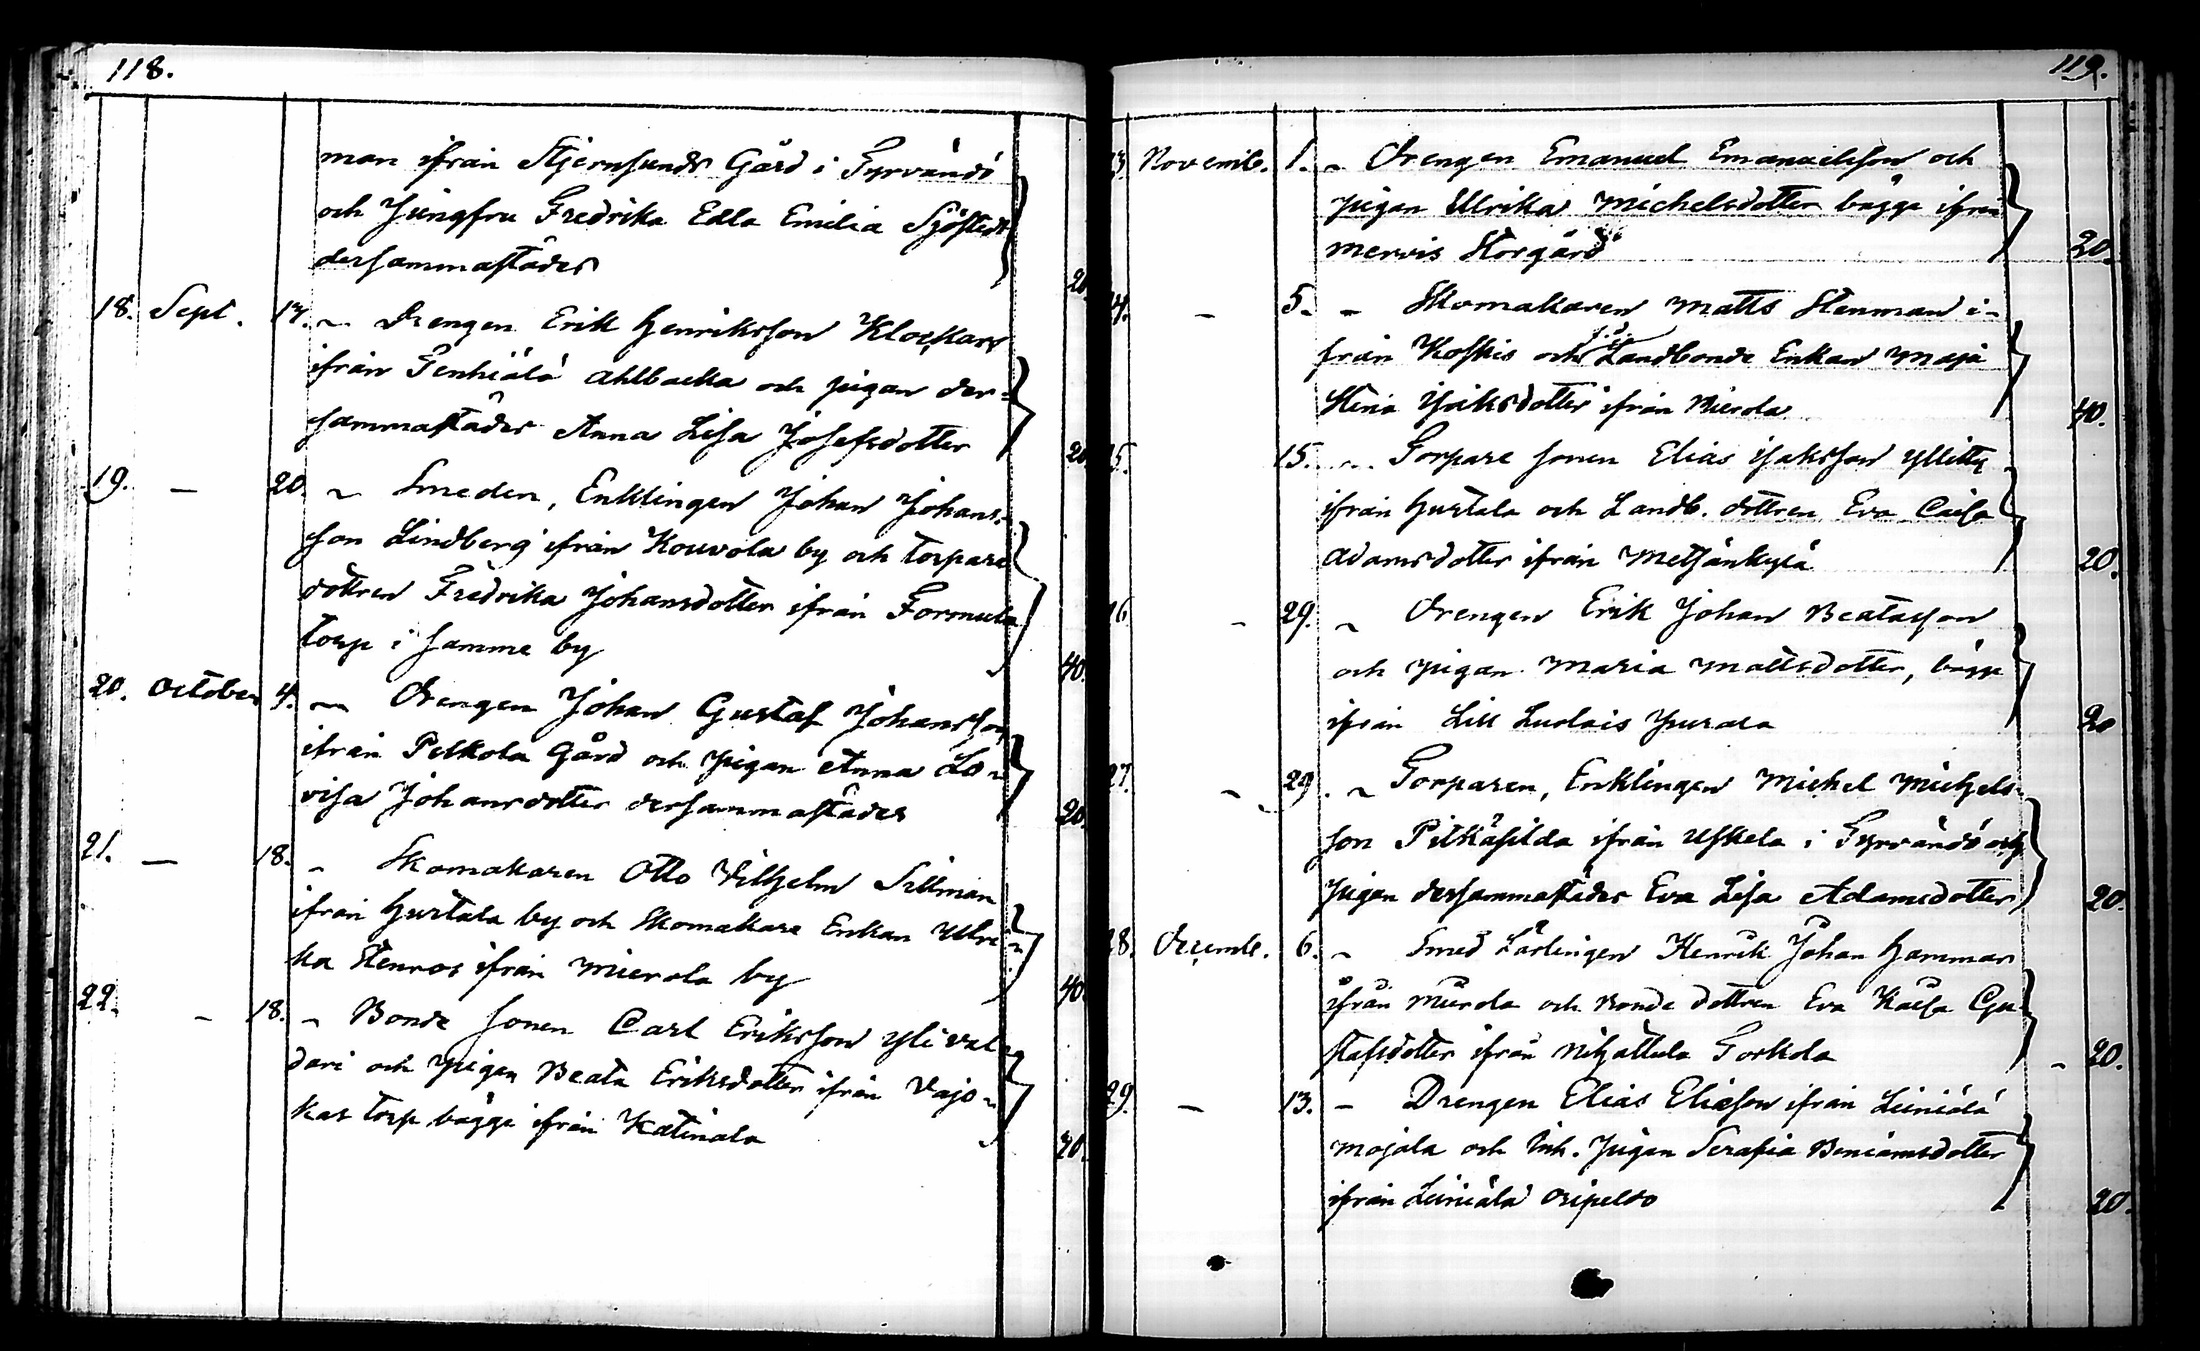 118.
man ifrån Stjernsunds Gård i Tyrvändö
och Jungfru Fredrika Edla Emilia Sjöstedt
dersammastädes 20
18. Sept. 17. Drengen Erik Henriksson Klockars
ifrån Tenhiälä Ahlbacka och pigan der=
sammastädes Anna Lisa Josefsdotter 20
19. — 20. Smeden, Enklingen Johan Johans-
son Lindberg ifrån Kouvola by och torpare
dottren Fredrika Johansdotter ifrån Tormula
torp i samme by 40.
20. October 4. Drengen Johan Gustaf Johansson
ifrån Pelkola Gård och Pigan Anna Lo-
visa Johansdotter dersammastädes 20.
21. — 18. Skomakaren Otto Vilhelm Sillman
ifrån Hurtala by och Skomakare Enkan Ulri-
ka Stenroos ifrån Mierola by 40.
22. – 18. Bonde sonen Carl Eriksson Yli val-
dari och pigan Beata Eriksdotter ifrån Vajo-
kas torp bägge ifrån Katinala 20.
119.
23. Novemb. 1. Drengen Emanuel Emanuelsson och
pigan Ulrika Michelsdotter bägge ifrån
Mervis Storgård 20.
24. – 5. – Skomakaren Matts Stenman i-
från Koskis och Landbonde Enkan Maja
Stina Isriksdotter ifrån Mierola 40.
25. 15. Torpare sonen Elias Isaksson Yllitty
ifrån Hurtala och Landb. dottren Eva Caisa
Adamsdotter ifrån Metsänkylä 20.
26 – 29. Drengen Erik Johan Beatasson
och pigan Maria Mattsdotter, bägge
ifrån Lill Luolais 20
27. – 29. Torparen, Enklingen Michel Michels-
son Pitkäsilda ifrån Uskela i Tyrvändö och
pigan dersammastädes Eva Lisa Adamsdotter 20.
28. Decemb. 6. Smed Lärlingen Henrik Johan Hammar
ifrån Mierola och Bonde dottren Eva Kaisa Gu-
stafsdotter ifrån Nihattula Torkola – 20.
29. — 13. – Drengen Elias Eliasson ifrån Leiniälä
Mojala och Inh. Pigan Serafia Beniamsdotter
ifrån Leiniälä 20.